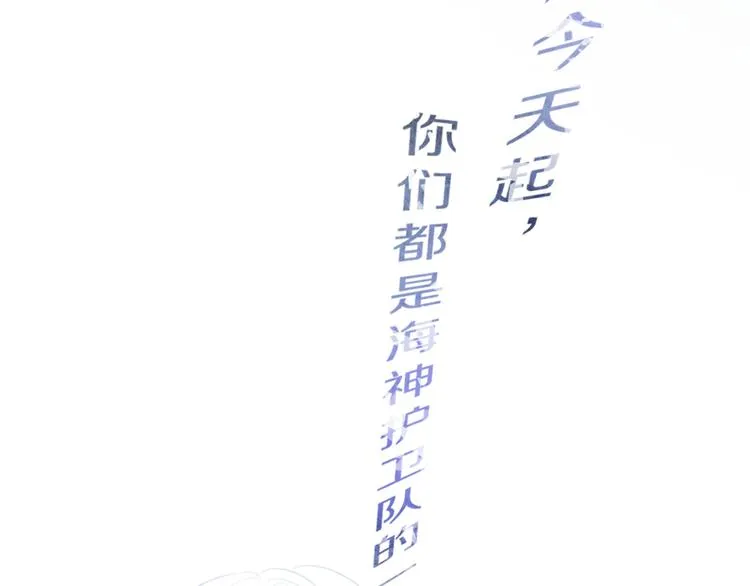 今天起，
你们都是海神护卫队的一